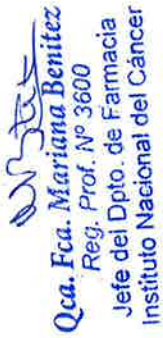 Qca. Fca. Mariana Benitez
Reg. Prof. Nº 3600
Jefe del Dpto. de Farmacia
Instituto Nacional del Cáncer